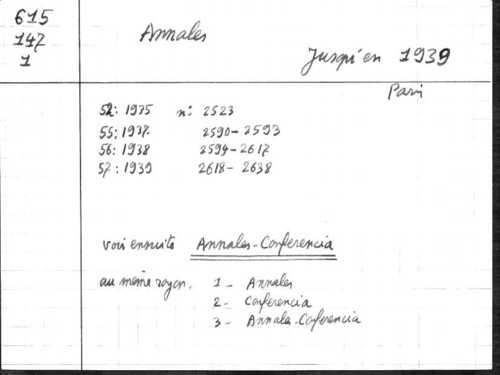 615
147
1
Annales
Jusqu'en 1939
Paris
52: 1935 n°: 2523
55: 1937 2590-2593
56: 1938 2594-2617
57: 1939 2618-2638
voir ensuite Annales-Conferencia
au même rayon. 1- Annales
2- Conferencia
3- Annales-Conferencia